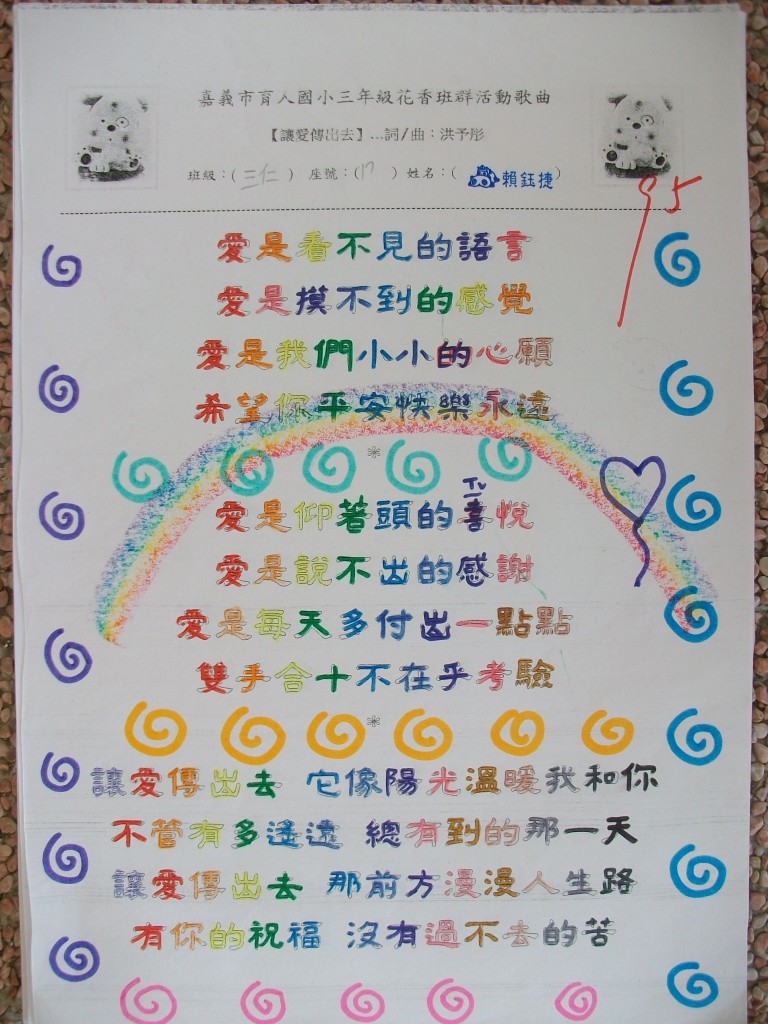 嘉義市育人國小三年級花香班群活動歌曲
【讓愛傳出去】…詞/曲：洪予彤
班級：(三仁) 座號：(17) 姓名：(賴鈺捷)
95
愛是看不見的語言
愛是摸不到的感覺
愛是我們小小的心願
希望你平安快樂永遠
*
愛是仰著頭的喜悅
愛是說不出的感謝
愛是每天多付出一點點
雙手合十不在乎考驗
*
讓愛傳出去 它像陽光溫暖我和你
不管有多遙遠 總有到的那一天
讓愛傳出去 那前方漫漫人生路
有你的祝福 沒有過不去的苦